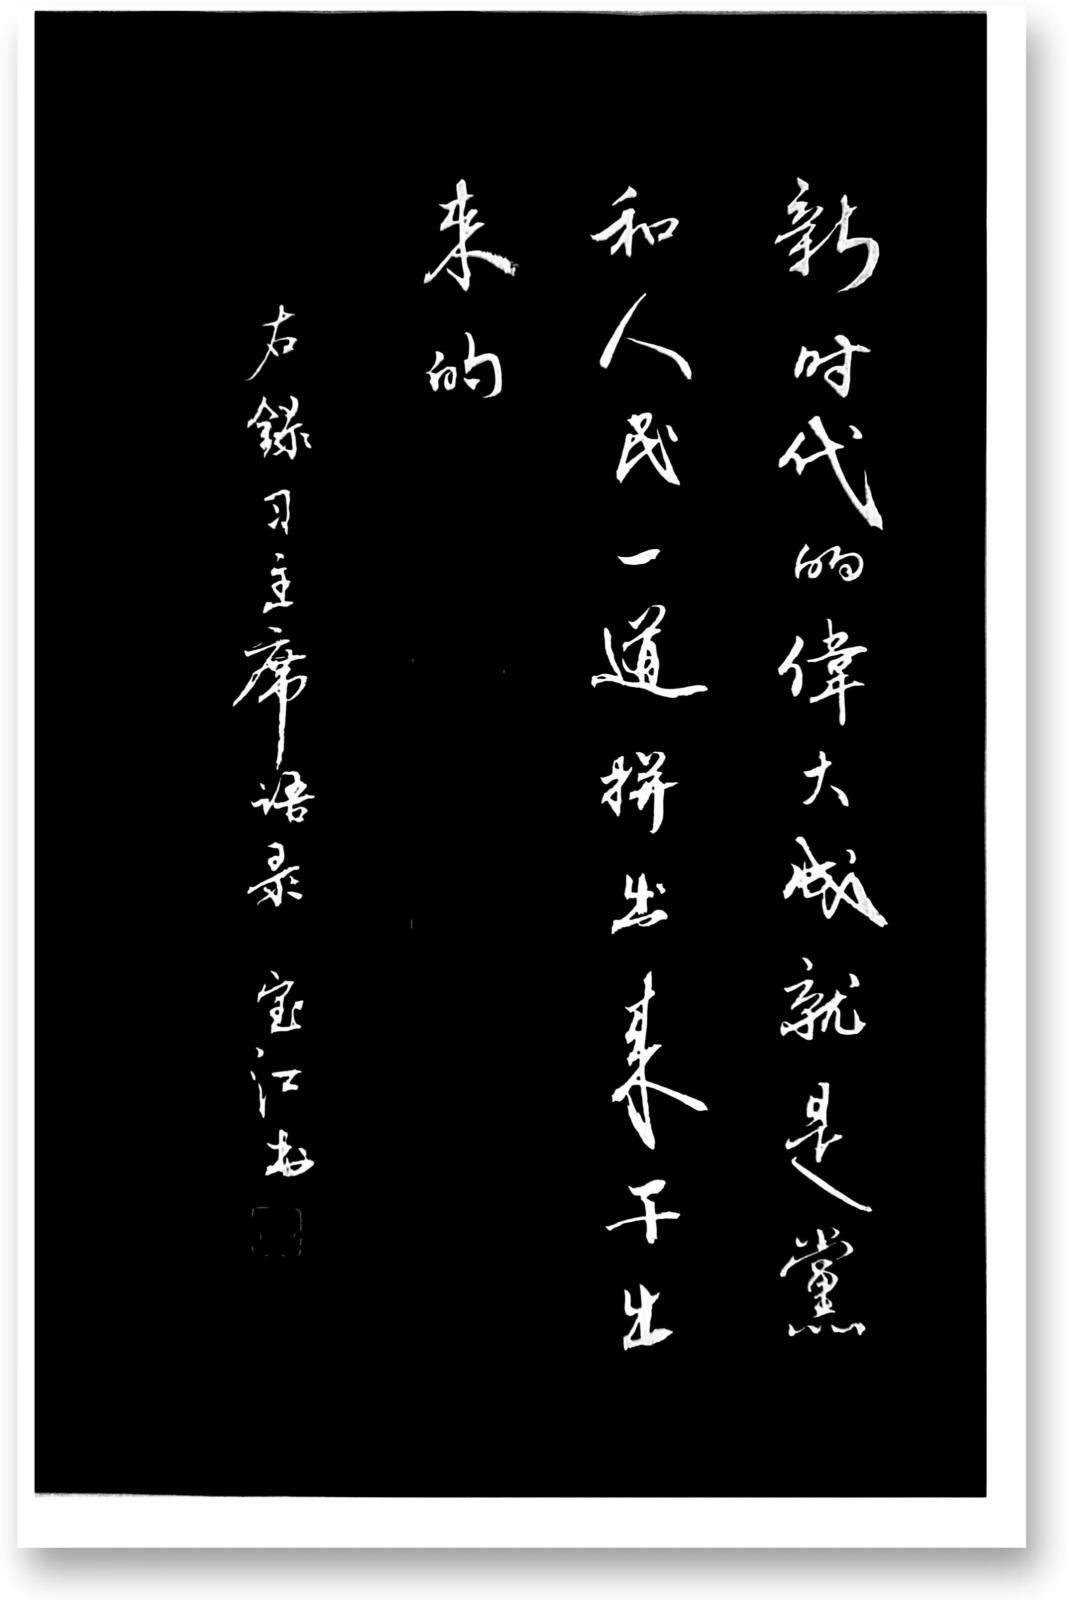 新时代的偉大成就是黨
和人民一道拼出来干出
来的
右錄习主席语录 宝江书